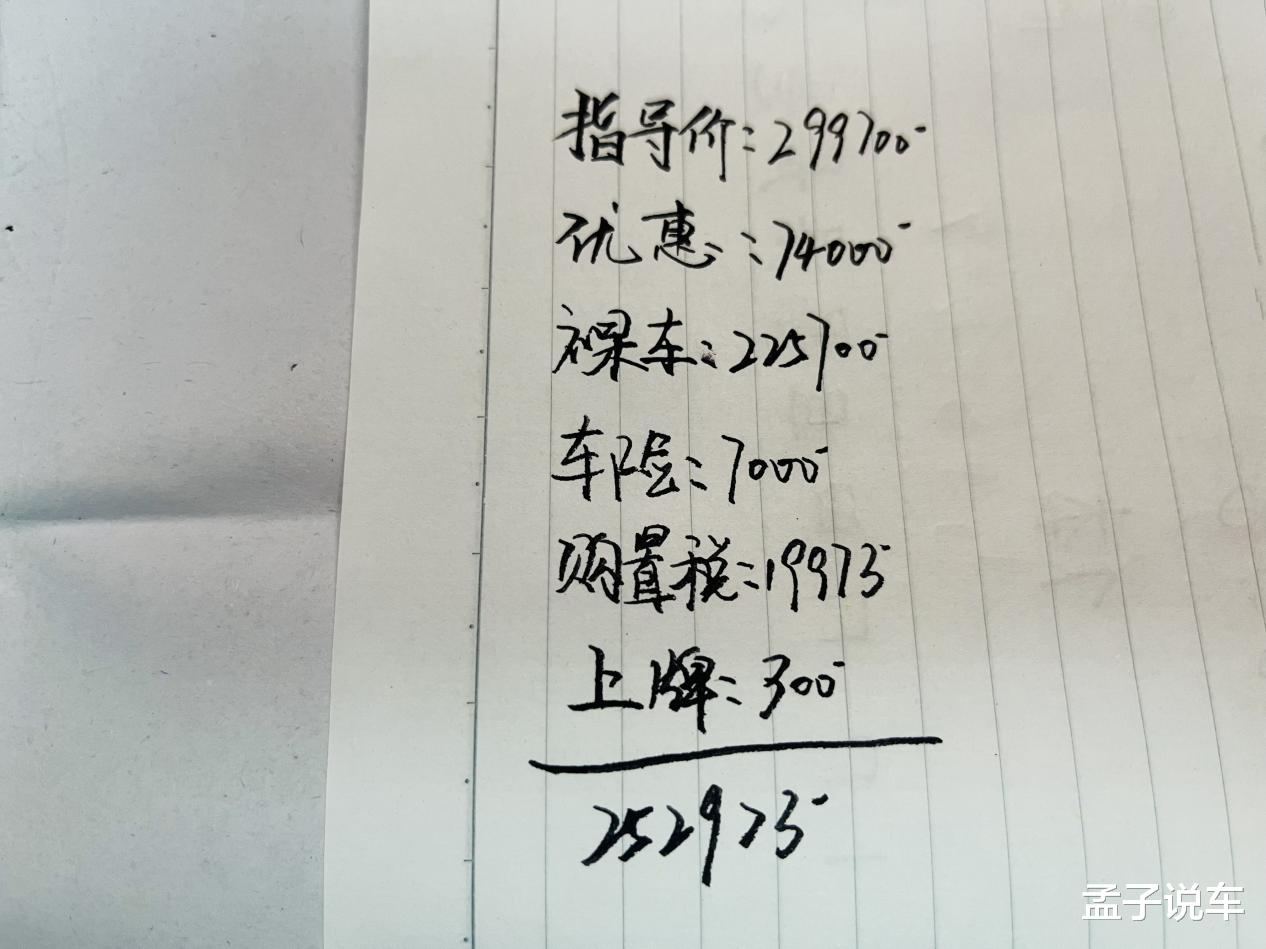 指导价:299700
优惠:74000
裸车:225700
车险:7000
购置税:19973
上牌:300
252973
孟子说车